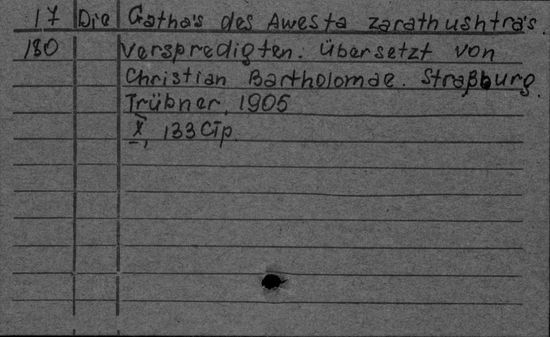 17 Die Gatha's des Awesta zarathushtra's.
180 verspredigten. übersetzt von
Christian Bartholomae. Straßburg.
Trübner, 1905
X, 133 Стр.